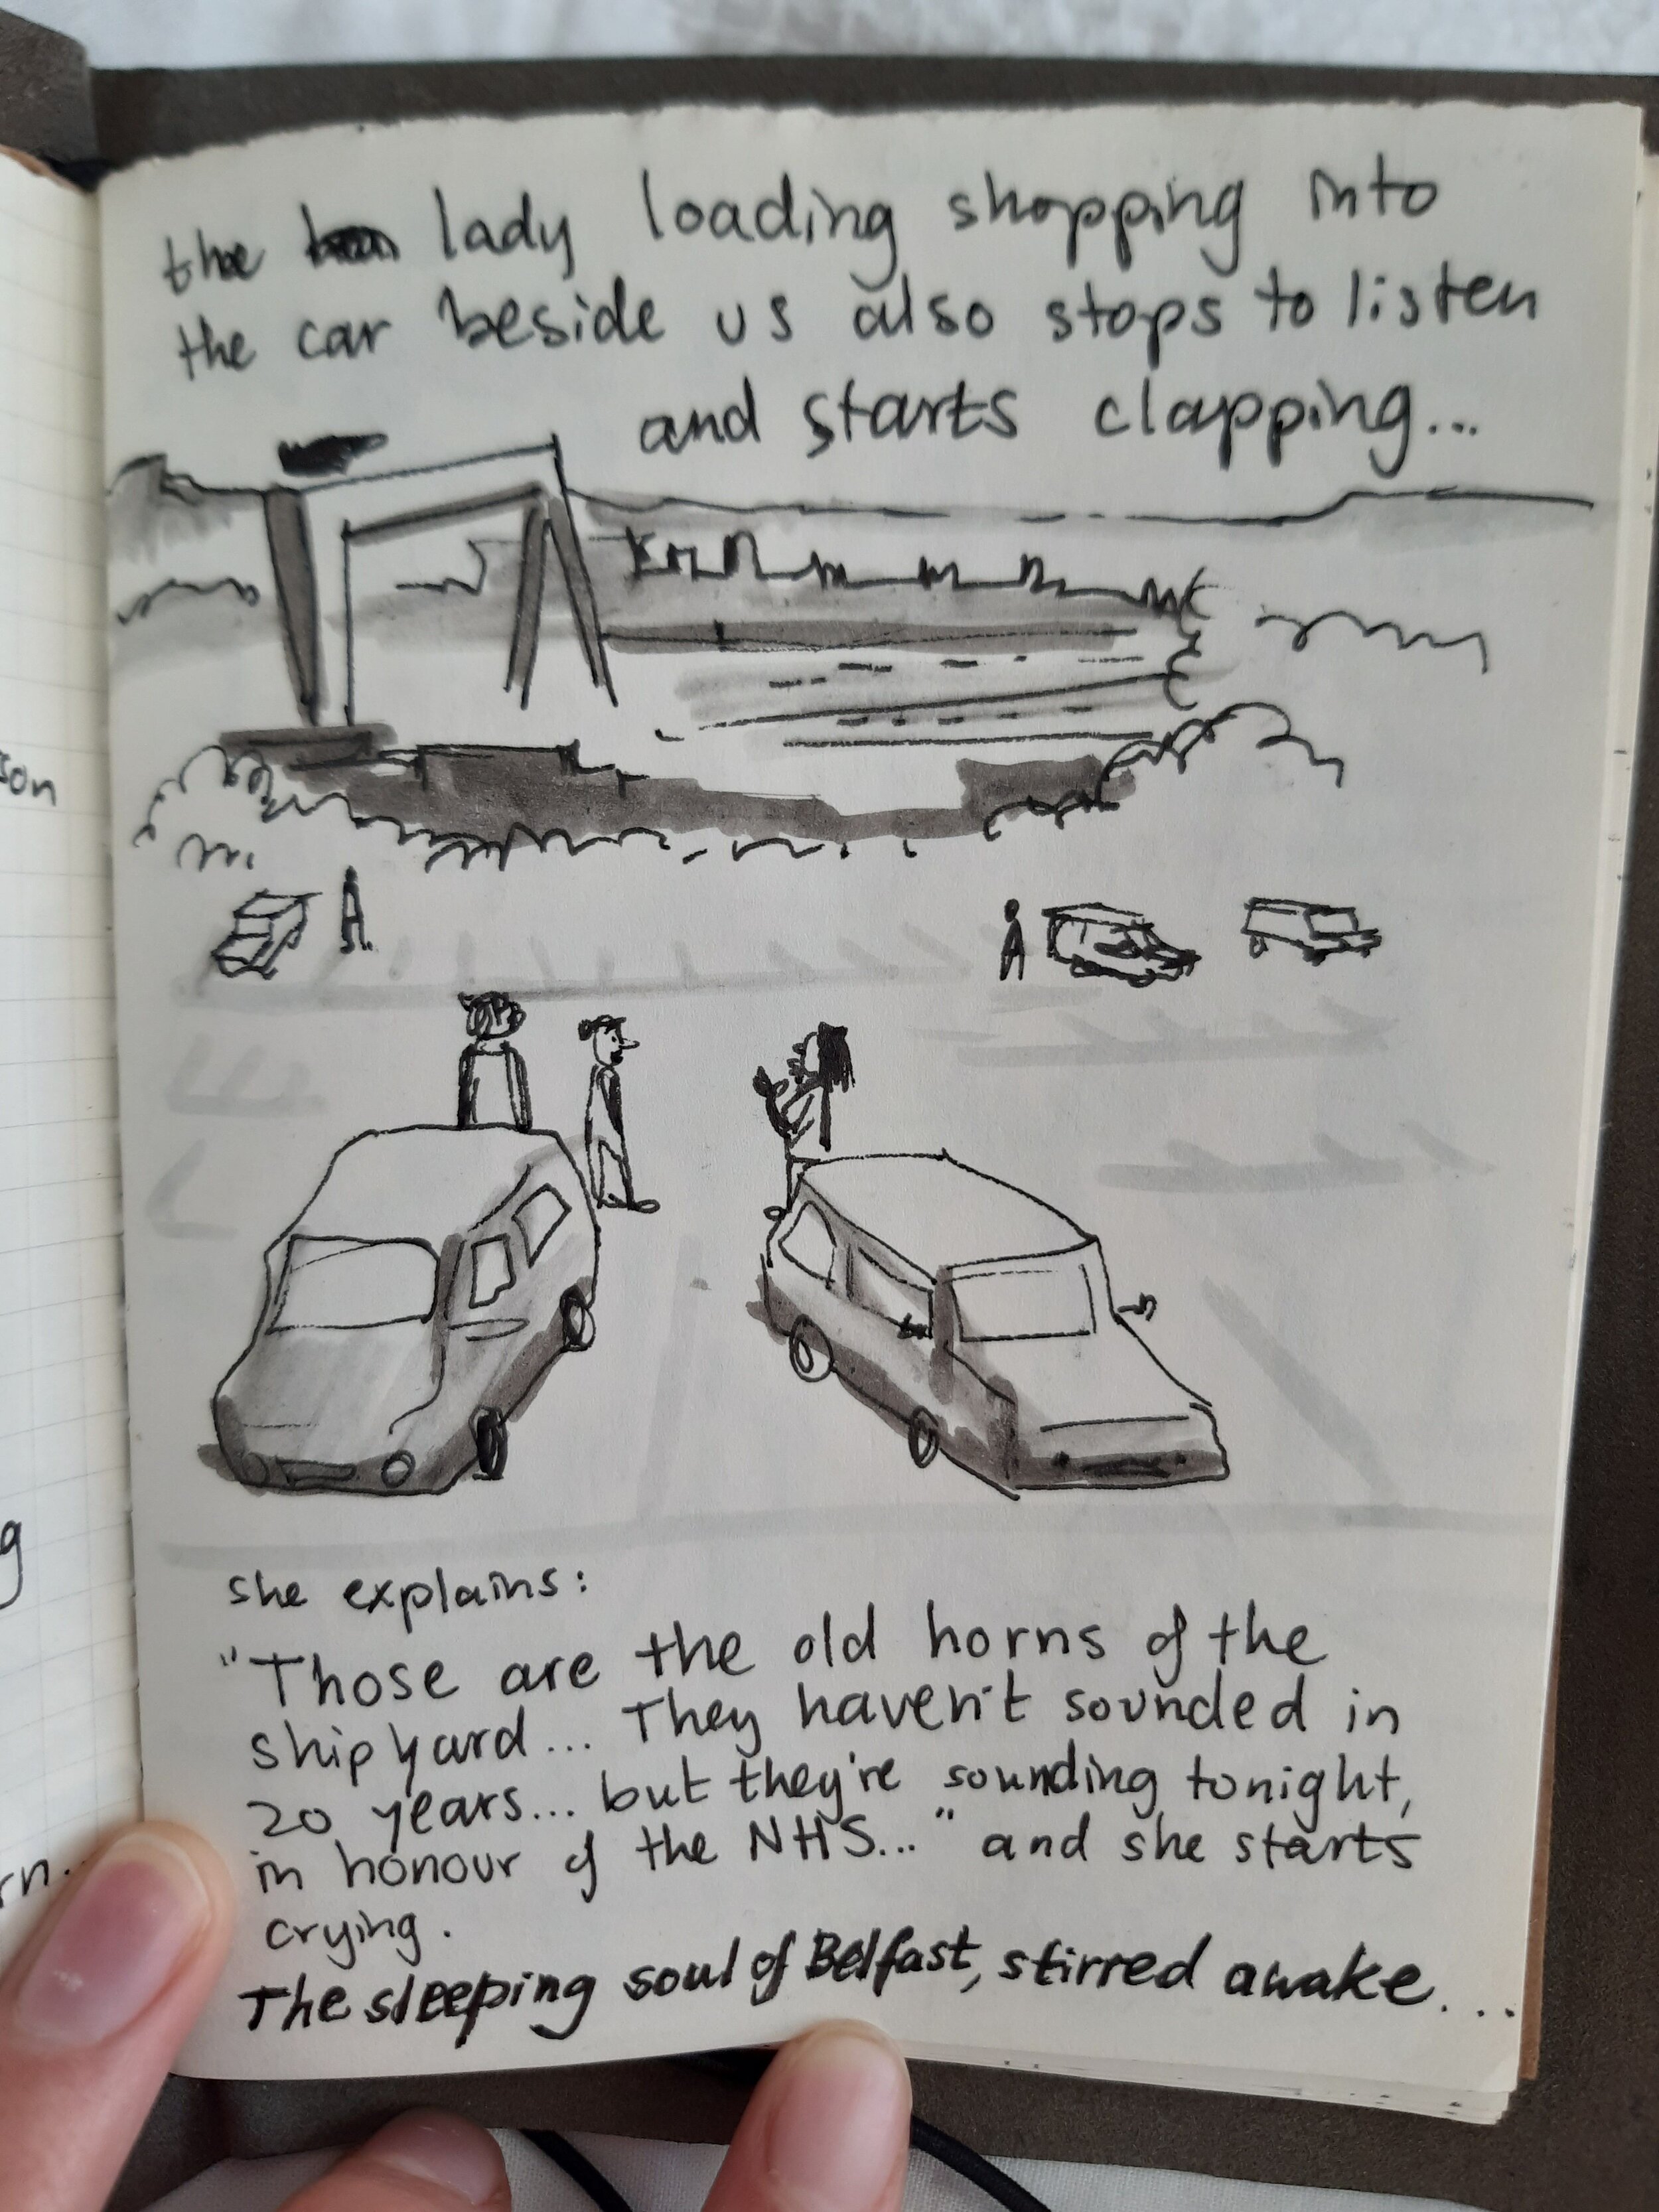 the lady loading shopping into
the car beside us also stops to listen
and starts clapping...
she explains:
"Those are the old horns of the
shipyard... They haven't sounded in
20 years... but they're sounding tonight,
in honour of the NHS..." and she starts
crying.
The sleeping soul of Belfast, stirred awake...
son
g
rn...